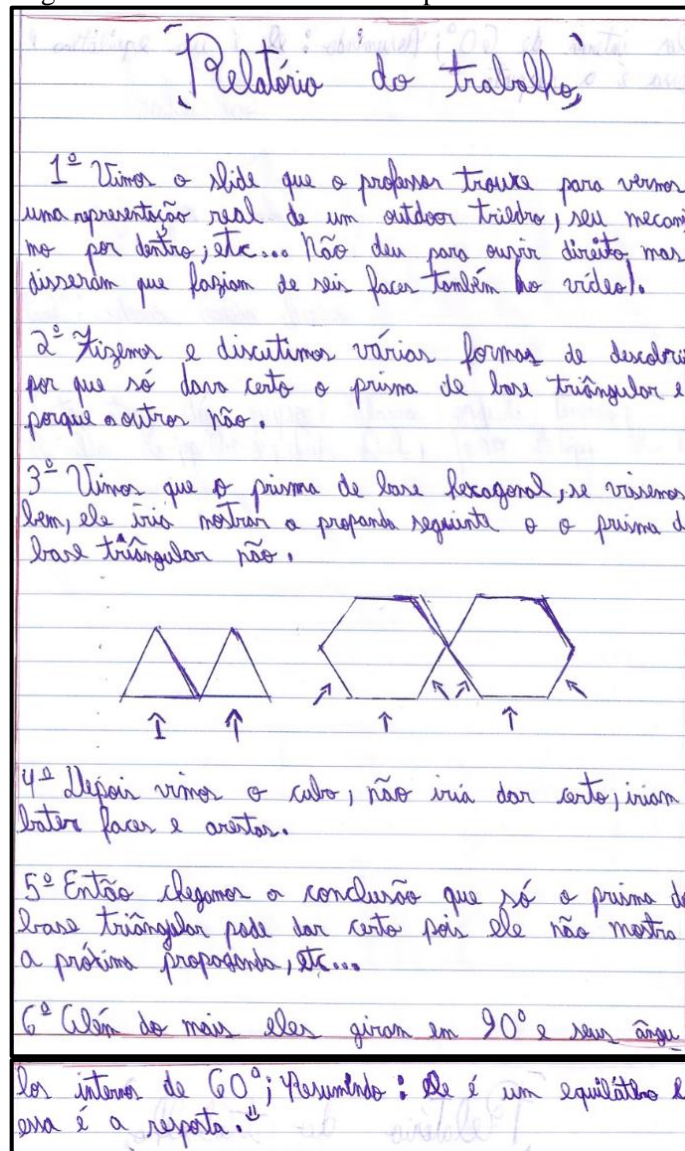 "Relatório do trabalho"
1º Vimos o slide que o professor trouxe para vermos
uma representação real de um outdoor triedro, seu mecanis
mo por dentro, etc... Não deu para ouvir direito mas
disseram que faziam de seis faces também (no vídeo).
2º Fizemos e discutimos várias formas de descobrir
por que só dava certo o prisma de base triângular e
porque outros não.
3º Vimos que o prisma de base hexagonal, se vissemos
bem, ele iria mostrar a propanda seguinte o o prisma d
base triângular não.
4º Depois vimos o cubo, não iria dar certo, iriam
bater faces e arestas.
5º Então chegamos a conclusão que só o prisma de
base triângular pode dar certo pois ele não mostra
a próxima propaganda, etc...
6º Além do mais eles giram em 90° e seus ângu
los internos de 60°; Resumindo: Ele é um equilátero e
essa é a resposta."